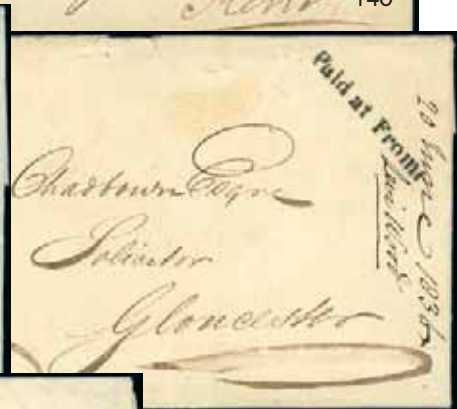 Kent
140
Paid at Frome
20 June 1836
Chadbown Esqre
Solicitor
Gloucester